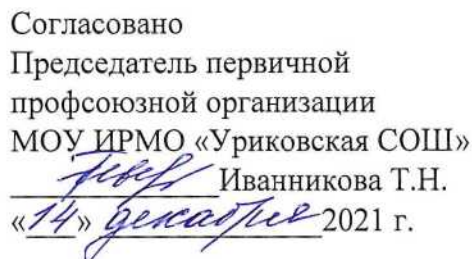 Согласовано
Председатель первичной
профсоюзной организации
МОУ ИРМО «Уриковская СОШ»
Иванникова Т.Н.
«14» декабря 2021 г.